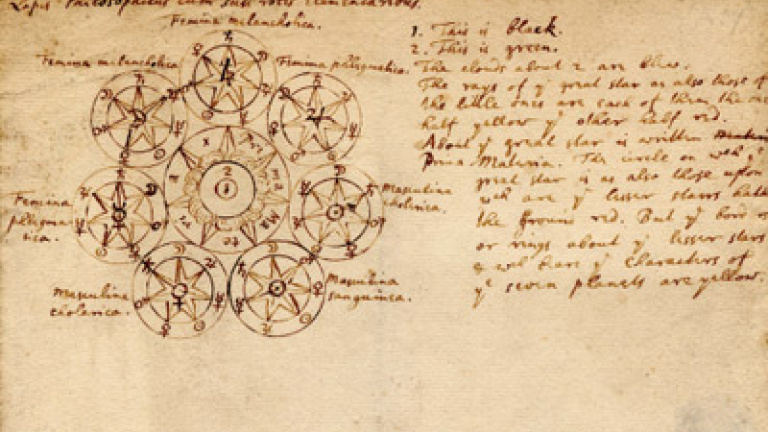 Lapis Philosophicus cum suis rotis elementaribus.
Femina melancholica.
Femina melancholica
Femina phlegmatica.
Femina phlegmatica.
Masculina cholerica.
Masculina cholerica.
Masculina sanguinea.
Prima Materia
2
1
1. This is black.
2. This is green.
The clouds about 2 are blew.
The rays of yͤ great star as also those of
the little ones are each of them the one
half yellow yͤ other half red.
About yͤ great star is written
Prima Materia. The circle on wch yͤ
great star is as also those upon
wch are yͤ lesser starrs hath
the red. But yͤ
or rings about yͤ lesser stars
wch bears yͤ characters of
yͤ seven planets are yellow.